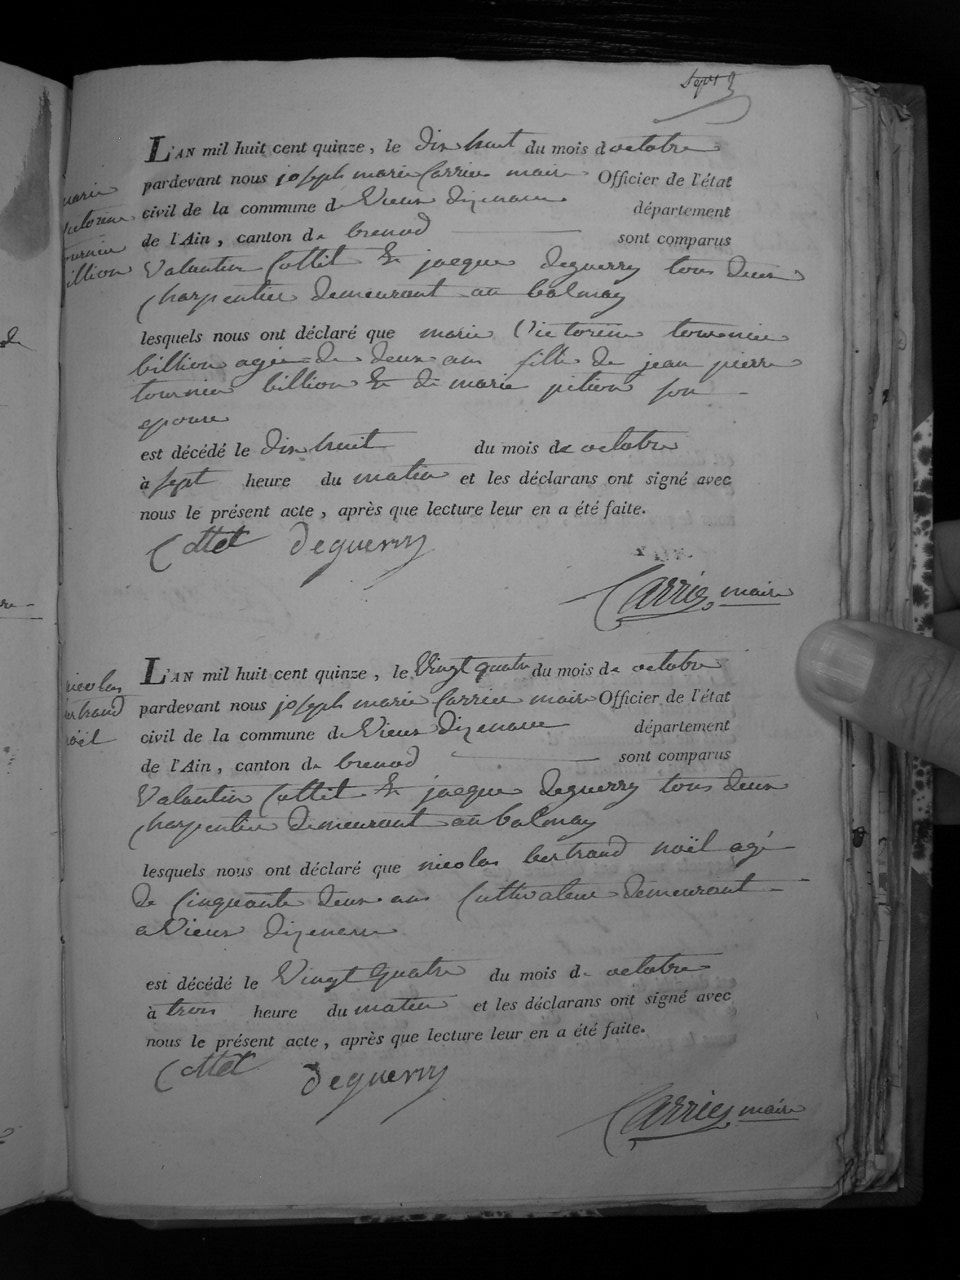 Sept
L'AN mil huit cent quinze, le dix huit du mois d octobre
pardevant nous joseph marie Carrier maire Officier de l'état
marie
civil de la commune de Vieux dizenave département
victorine
de l'Ain, canton de brenod sont comparus
tournier
billion
Valantin Cottet & jacque deguerry tous deux
charpentier demeurant au balmay
lesquels nous ont déclaré que marie Victorine tournier
billion agée de deux ans fille de jean pierre
tournier billion & de marie pition son
epouse
est décédé le dix huit du mois de octobre
à sept heure du matin et les déclarans ont signé avec
nous le présent acte, après que lecture leur en a été faite.
Cottet deguerry
Carrier, maire
L'AN mil huit cent quinze, le Vingt quatre du mois de octobre
nicolas
bertrand
noël
pardevant nous joseph marie Carrier maire Officier de l'état
civil de la commune de Vieux dizenave département
de l'Ain, canton de brenod sont comparus
Valantin Cottet & jacque deguerry tous deux
charpentier demeurant au balmay
lesquels nous ont déclaré que nicolas bertrand noël agé
de Cinquante deux ans Cultivateur demeurant
a Vieux dizenave
est décédé le Vingt quatre du mois de octobre
à trois heure du matin et les déclarans ont signé avec
nous le présent acte, après que lecture leur en a été faite.
Cottet deguerry
Carrier, maire